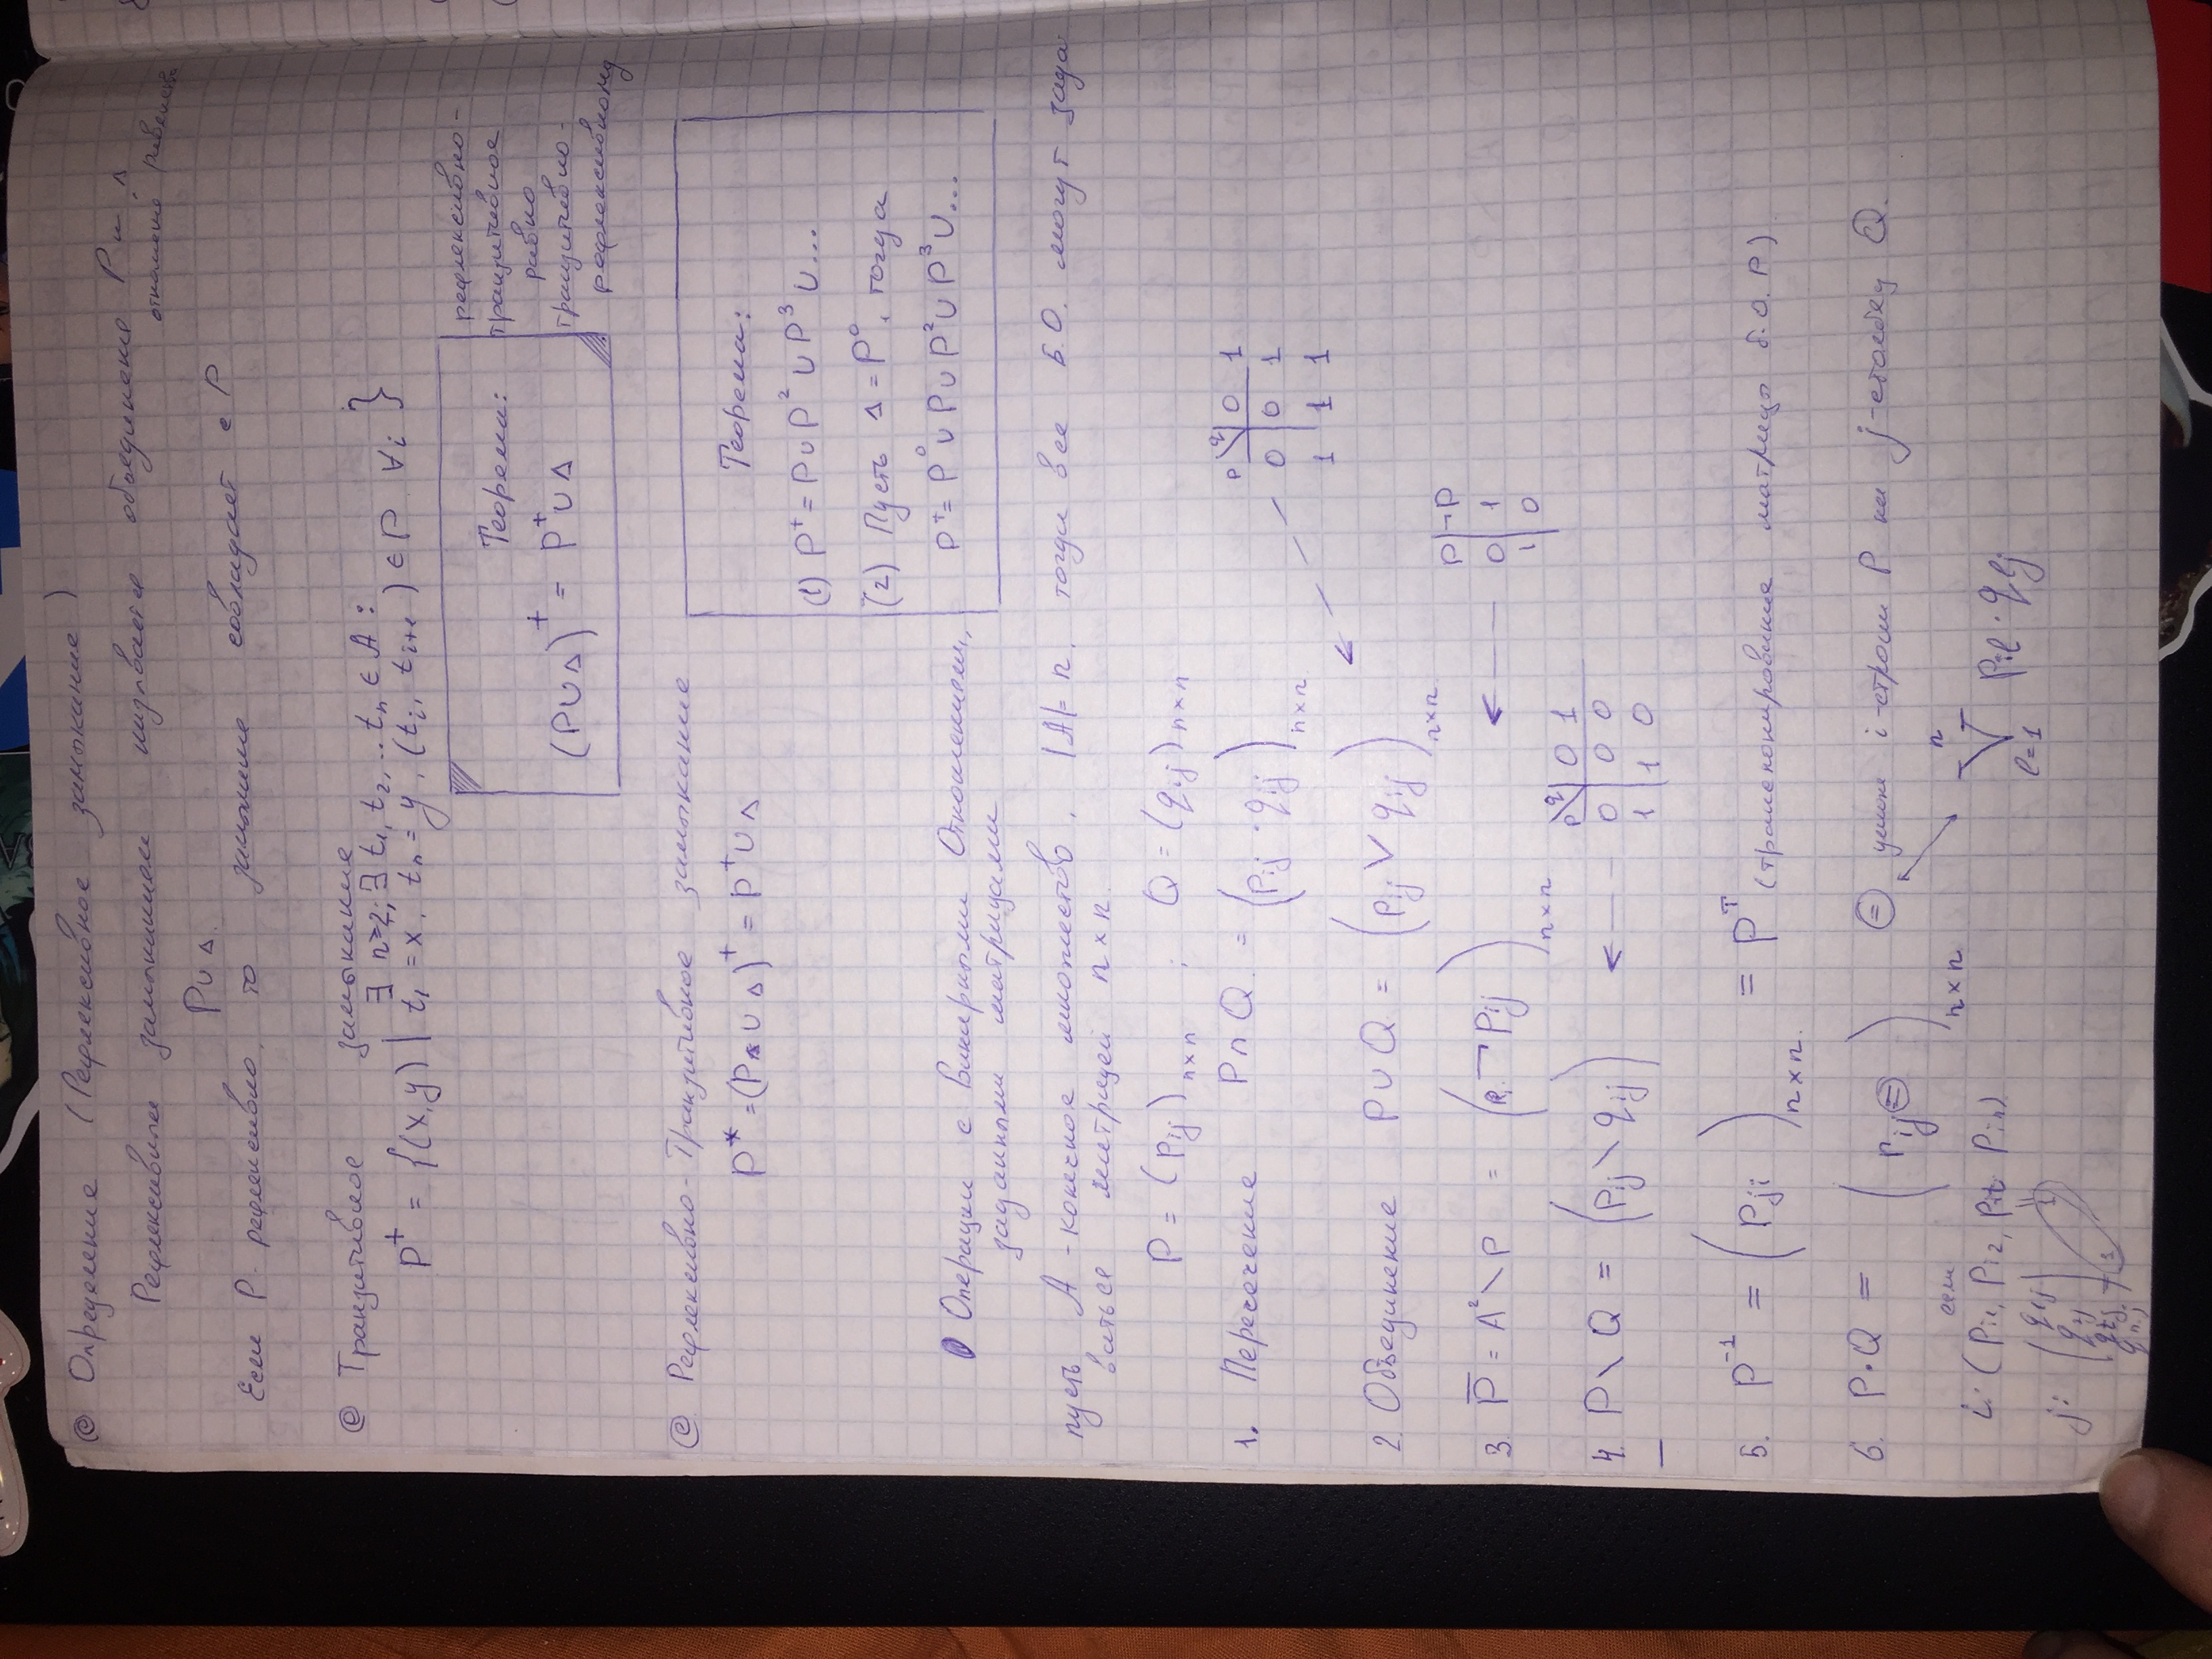 © Определение (Рефлексивное замыкание)
Рефлексивным замыканием называется объединение P и Δ
отношение равенства
P∪Δ.
Если P - рефлексивно, то замыкание совпадает с P
© Транзитивное замыкание
∃ n≥2; ∃ t₁, t₂, .. tₙ ∈ A :
P⁺ = {(x,y) | t₁ = x, tₙ = y, (tᵢ, tᵢ₊₁) ∈ P ∀i }
Теорема:
(P∪Δ)⁺ = P⁺∪Δ
рефлексивно-
транзитивное
равно
транзитивно-
рефлексивному
© Рефлексивно-Транзитивное замыкание
P* = (P ∪ Δ)⁺ = P⁺∪Δ
Теорема:
(1) P⁺ = P∪P²∪P³∪...
(2) Пусть Δ = P⁰, тогда
P⁺ = P⁰∪P∪P²∪P³∪...
Операции с Бинарными Отношениями,
заданными матрицами
пусть A - конечное множество, |A|= n, тогда все Б.О. могут зада
ваться матрицей n×n.
P = (pij)n×n ; Q = (qij)n×n
1. Пересечение P∩Q = (pij · qij)n×n
p\q | 0 1
0 | 0 1
1 | 1 1
2. Объединение P∪Q = (pij ∨ qij)n×n
3. P̅ = A²\P = (¬pij)n×n
P | ¬P
0 | 1
1 | 0
4. P\Q = (pij \ qij)
p\q | 0 1
0 | 0 0
1 | 1 0
5. P⁻¹ = (pji)n×n = Pᵀ (транспонирование матрицы б.О. P)
6. P·Q = (rij ⊜)n×n ⊜ умнож i-строки P на j-столбец Q.
если
i: (pi1, pi2, pit pin)
n
⋁ pil · qlj
l=1
j: (q1j
q2j
qtj = 1
qnj)
1